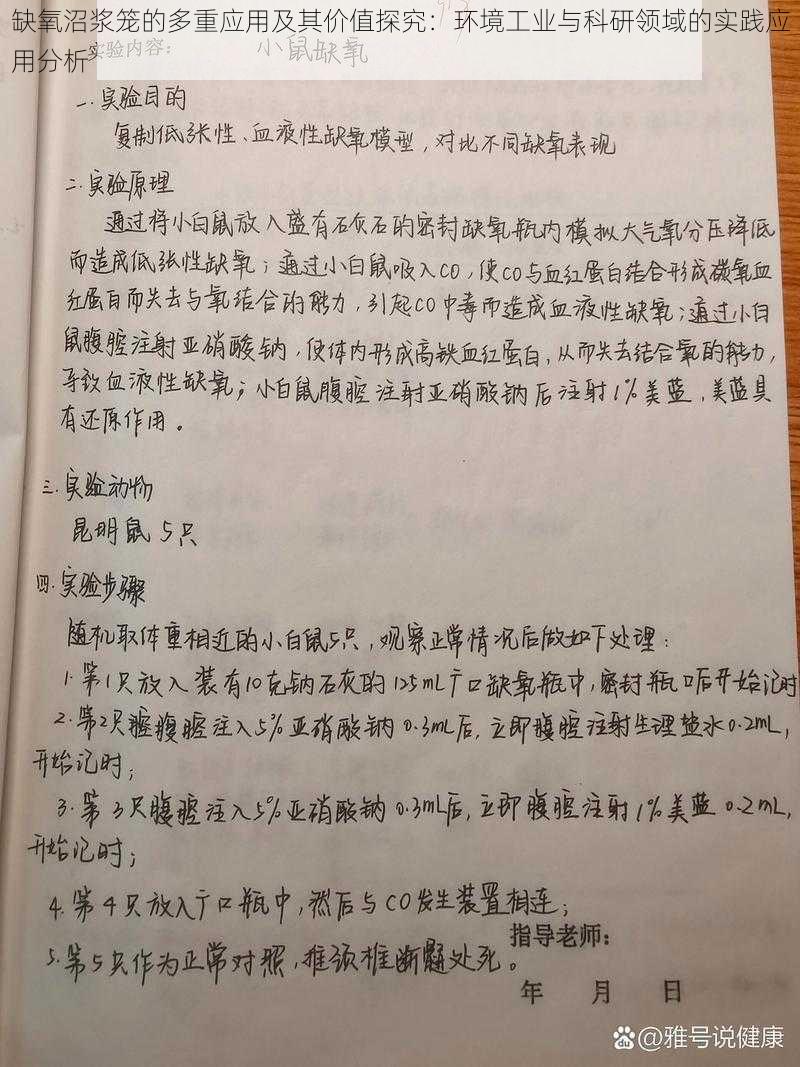 缺氧沼浆笼的多重应用及其价值探究：环境工业与科研领域的实践应
用分析
实验内容：
小鼠缺氧
一.实验目的
复制低张性、血液性缺氧模型，对比不同缺氧表现
二.实验原理
通过将小白鼠放入盛有石灰石的密封缺氧瓶内模拟大气氧分压降低
而造成低张性缺氧；通过小白鼠吸入CO，使CO与血红蛋白结合形成碳氧血
红蛋白而失去与氧结合的能力，引起CO中毒而造成血液性缺氧；通过小白
鼠腹腔注射亚硝酸钠，使体内形成高铁血红蛋白，从而失去结合氧的能力，
导致血液性缺氧；小白鼠腹腔注射亚硝酸钠后注射1%美蓝，美蓝具
有还原作用。
三.实验动物
昆明鼠 5只
四.实验步骤
随机取体重相近的小白鼠5只，观察正常情况后做如下处理：
1.第1只放入装有10克钠石灰的125mL广口缺氧瓶中，密封瓶口后开始记时
2.第2只腹腔注入5%亚硝酸钠0.3mL后，立即腹腔注射生理盐水0.2mL，
开始记时；
3.第3只腹腔注入5%亚硝酸钠0.3mL后，立即腹腔注射1%美蓝0.2mL，
开始记时；
4.第4只放入广口瓶中，然后与CO发生装置相连；
5.第5只作为正常对照，推颈椎断髓处死。
指导老师：
年 月 日
@雅号说健康